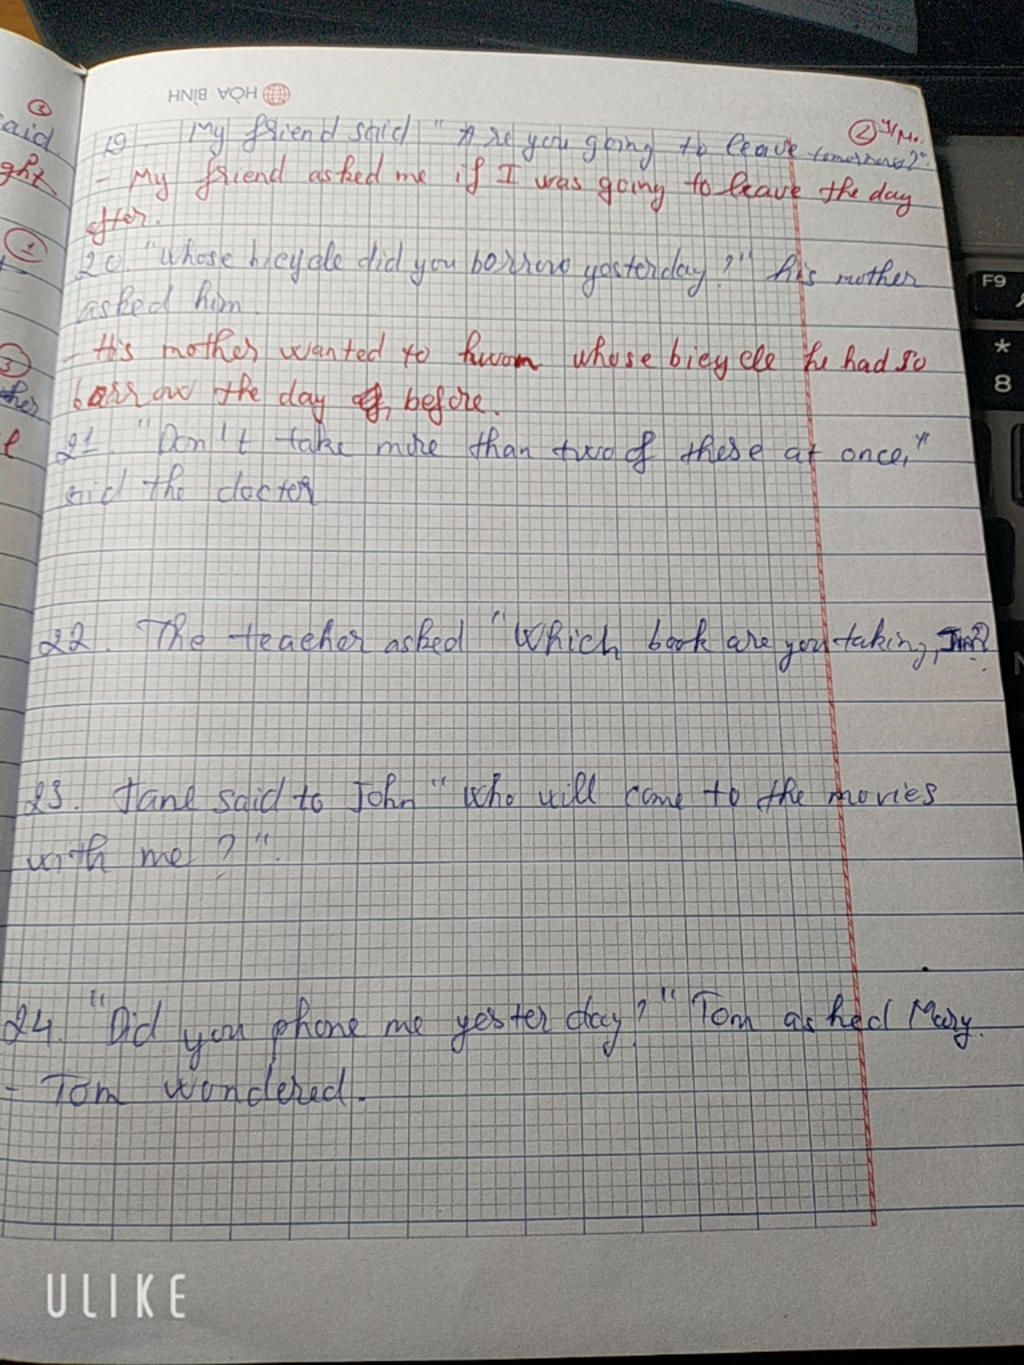 HÒA BÌNH
③
said
ght
①
③
her
e
② Y/N.
19. My friend said "Are you going to leave tomorrow?".
- My friend asked me if I was going to leave the day
after.
20. "Whose bicycle did you borrow yesterday?" his mother
asked him.
- His mother wanted to whose bicycle he had
borrow the day before.
21 "Don't take more than two of these at once,"
said the doctor
22. The teacher asked "Which book are you taking,
23. Jane said to John "Who will come to the movies
with me?".
24. "Did you phone me yesterday?" Tom asked Mary.
- Tom wondered.
F9
*
8
ULIKE